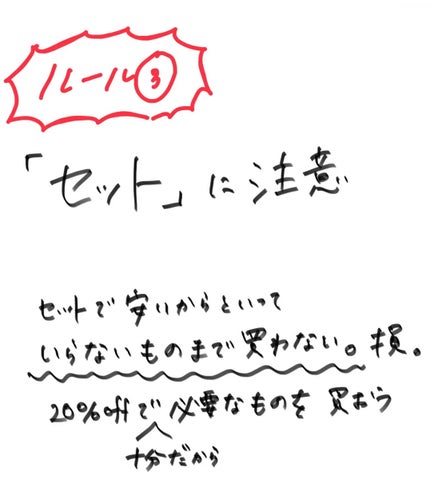 ルール③
「セット」に注意
セットで安いからといって
いらないものまで買わない。損。
20%offで必要なものを買おう
十分だから